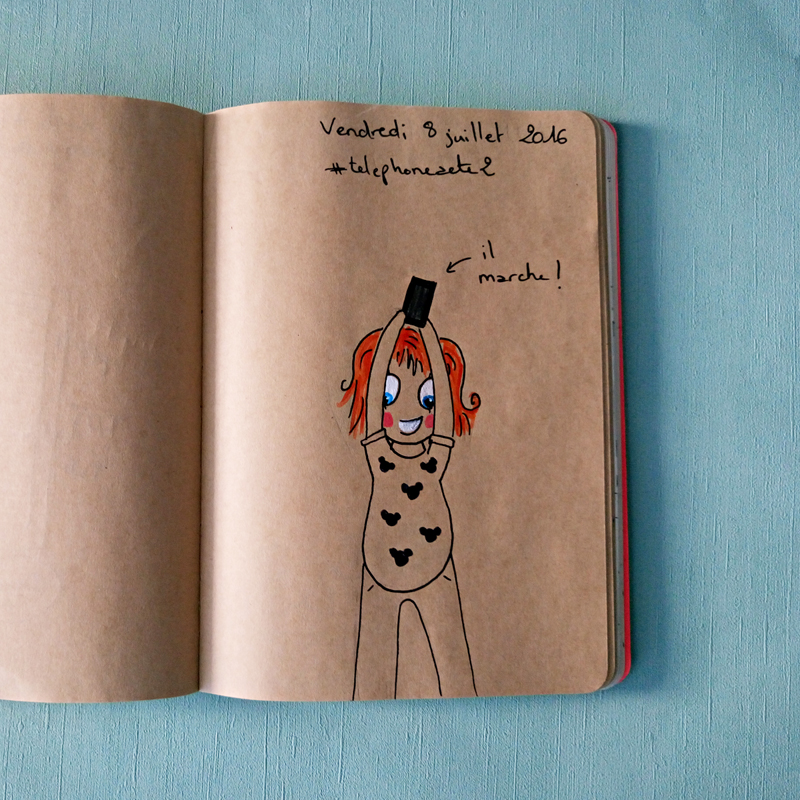 Vendredi 8 juillet 2016
#telephonezete2
il
marche!